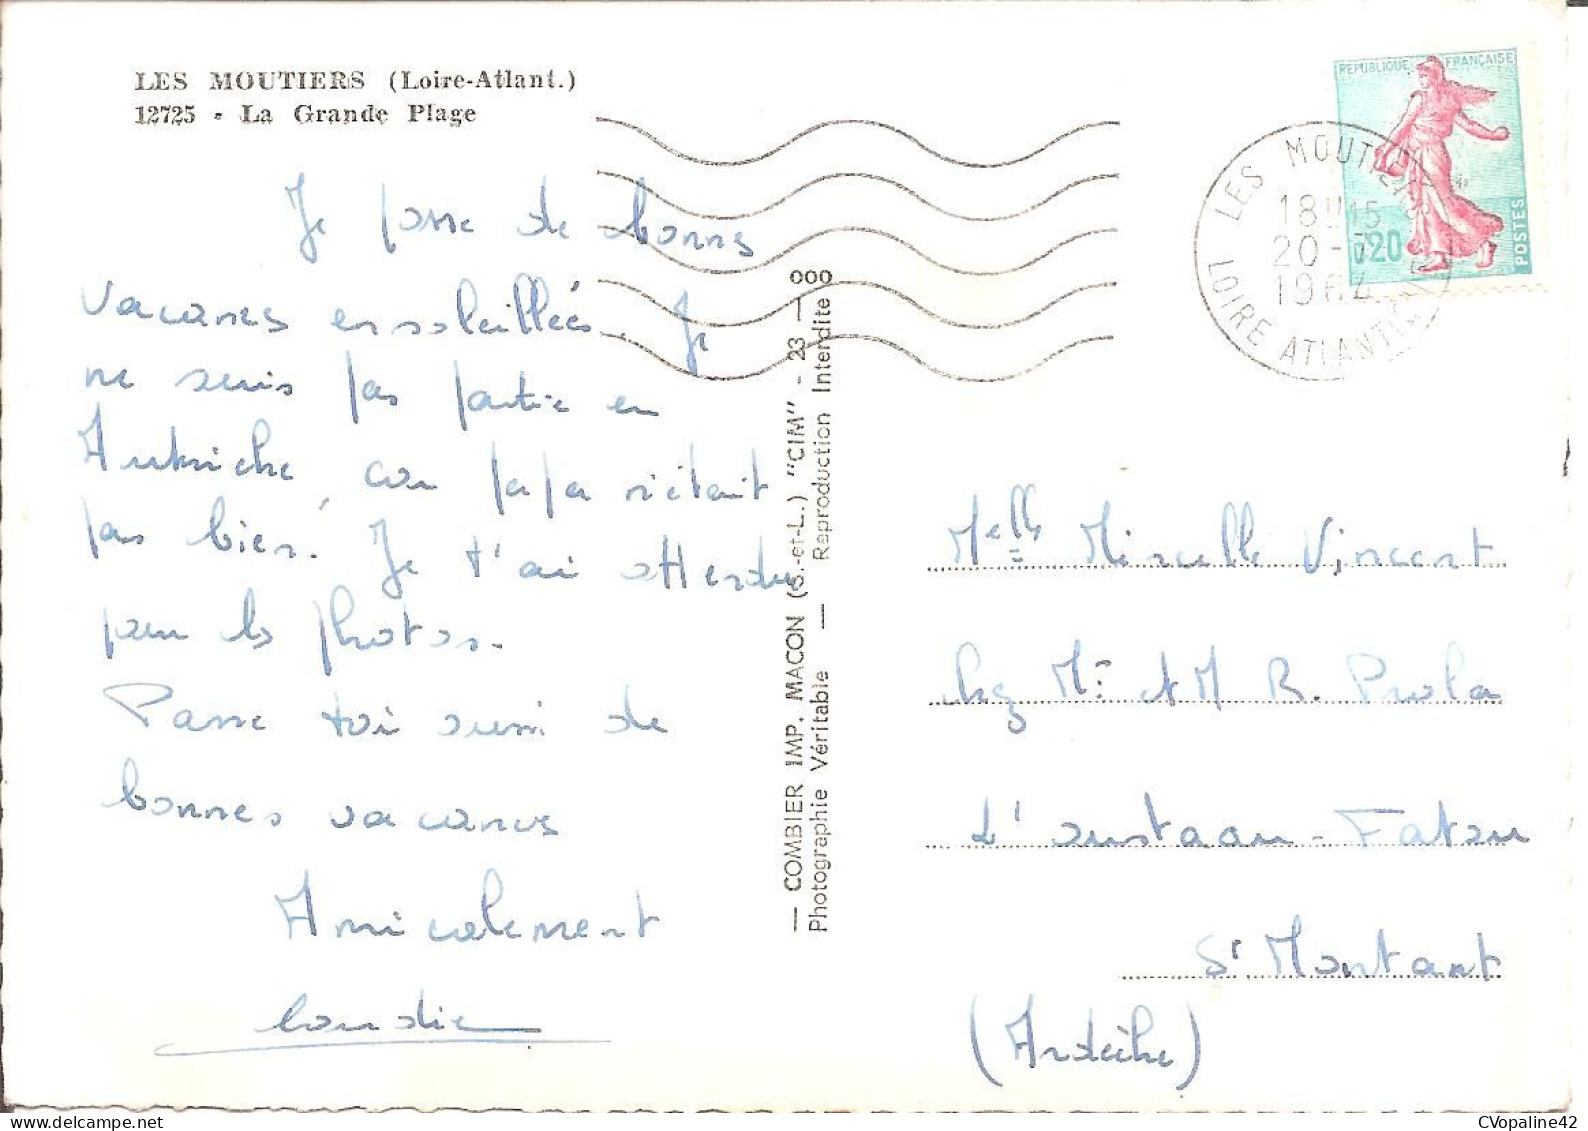 LES MOUTIERS (Loire-Atlant.)
12725 - La Grande Plage
Je passe de bonnes
vacances ensoleillées. Je
ne suis pas partie en
Autriche, car papa n'était
pas bien. Je t'ai attendu
pour les photos.
Passe toi aussi de
bonnes vacances
Amicalement
— COMBIER IMP. MACON (S.-et-L.) "CIM" - 23 — ooo
Photographie Véritable — Reproduction Interdite
REPUBLIQUE FRANÇAISE
0,20
POSTES
LES MOUTIERS
18H15
20-7
1964
LOIRE ATLANTIQUE
Melle Mireille Vincent
chez Mr A M R. Prola
L'oustaou-Fatou
St Montant
(Ardèche)
CVopaline42